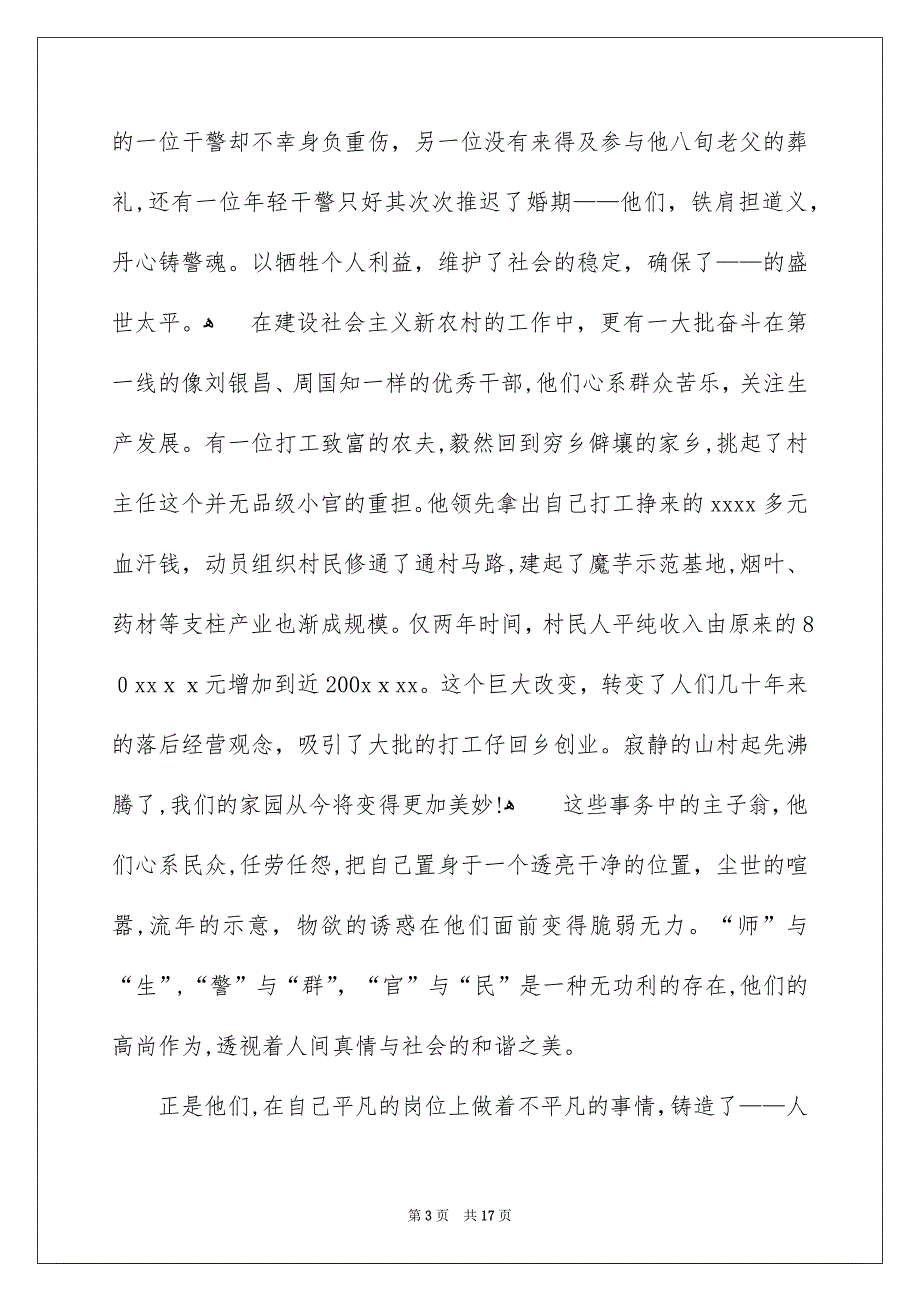 的一位干警却不幸身负重伤，另一位没有来得及参与他八旬老父的葬
礼,还有一位年轻干警只好其次次推迟了婚期——他们，铁肩担道义，
丹心铸警魂。以牺牲个人利益，维护了社会的稳定，确保了——的盛
世太平。ﻫ 在建设社会主义新农村的工作中，更有一大批奋斗在第
一线的像刘银昌、周国知一样的优秀干部,他们心系群众苦乐，关注生
产发展。有一位打工致富的农夫,毅然回到穷乡僻壤的家乡,挑起了村
主任这个并无品级小官的重担。他领先拿出自己打工挣来的xxxx多元
血汗钱，动员组织村民修通了通村马路,建起了魔芋示范基地,烟叶、
药材等支柱产业也渐成规模。仅两年时间，村民人平纯收入由原来的８
０xxｘｘ元增加到近200xｘxx。这个巨大改变，转变了人们几十年来
的落后经营观念，吸引了大批的打工仔回乡创业。寂静的山村起先沸
腾了,我们的家园从今将变得更加美妙!ﻫ 这些事务中的主子翁，他
们心系民众,任劳任怨,把自己置身于一个透亮干净的位置，尘世的喧
嚣,流年的示意，物欲的诱惑在他们面前变得脆弱无力。“师”与
“生”,“警”与“群”，“官”与“民”是一种无功利的存在,他们的
高尚作为,透视着人间真情与社会的和谐之美。
正是他们,在自己平凡的岗位上做着不平凡的事情,铸造了——人
第3页 共17页